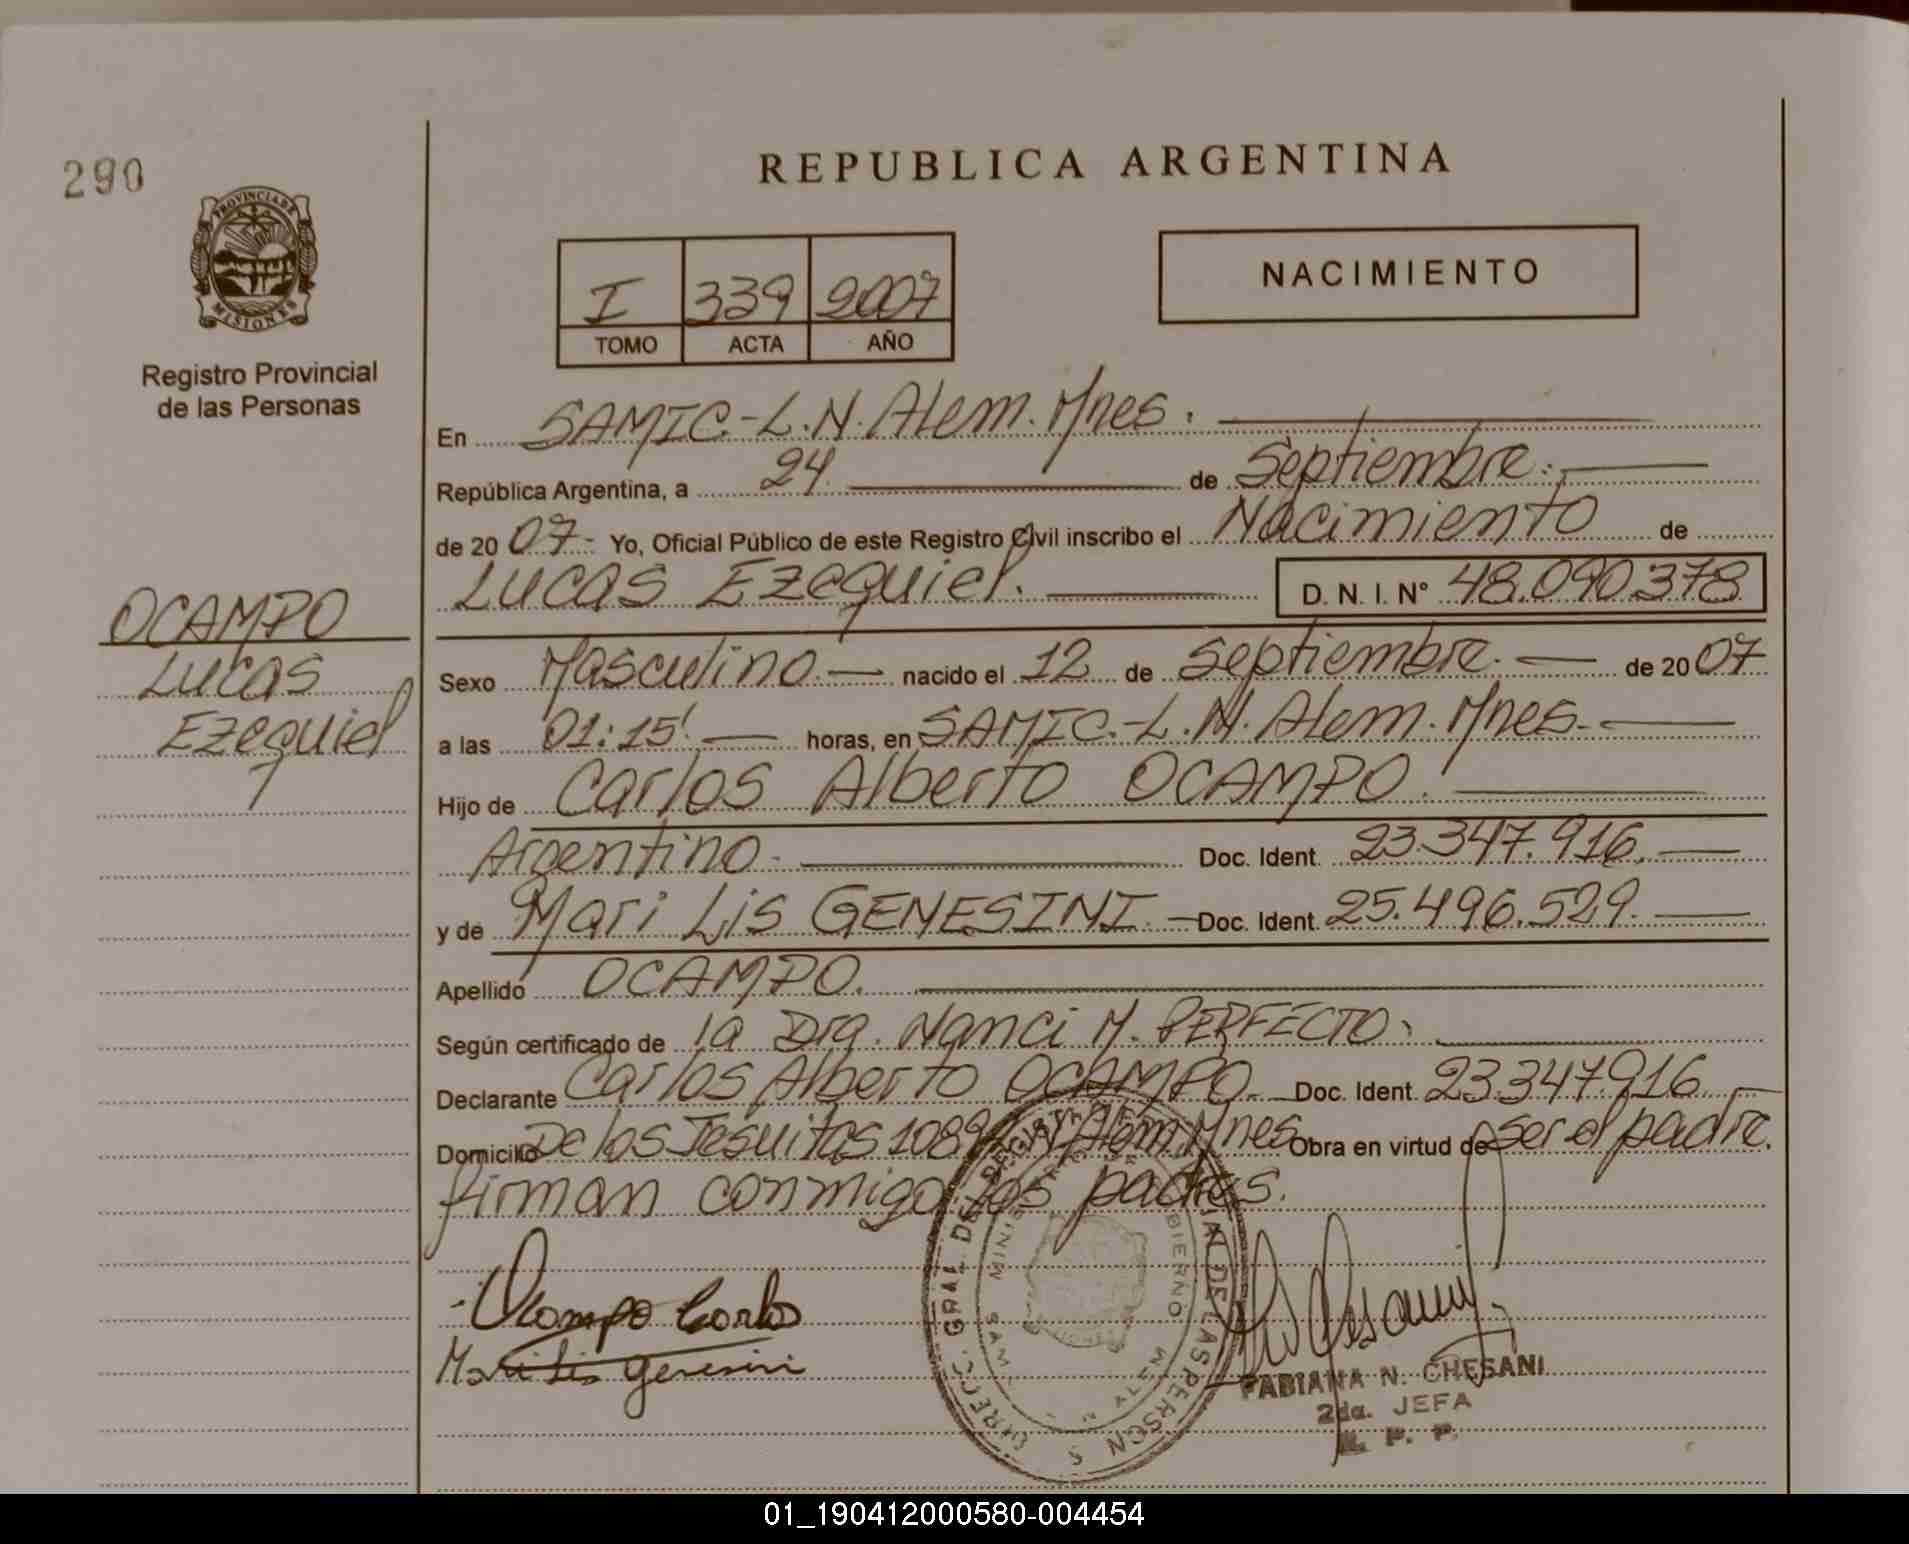 290
REPUBLICA ARGENTINA
PROVINCIA DE
MISIONES
Registro Provincial
de las Personas
I 339 2007
TOMO ACTA AÑO
NACIMIENTO
En SAMIC.-L.N.Alem.Mnes.
República Argentina, a 24 de Septiembre.
de 2007- Yo, Oficial Público de este Registro Civil inscribo el Nacimiento de
Lucas Ezequiel. D. N. I. N° 48.090.378
OCAMPO
Lucas
Ezequiel
Sexo Masculino.- nacido el 12 de Septiembre.- de 2007
a las 01:15' horas, en SAMIC.-L.N.Alem.Mnes.-
Hijo de Carlos Alberto OCAMPO.
Argentino.- Doc. Ident. 23.347.916.
y de Mari Lis GENESINI.- Doc. Ident. 25.496.529.
Apellido OCAMPO.
Según certificado de la Dra. Nanci M. PERFECTO.
Declarante Carlos Alberto OCAMPO.- Doc. Ident. 23.347.916.
Domicilio De los Jesuitas 1089 Alem.Mnes Obra en virtud de ser el padre.
firman conmigo los padres.
Ocampo Carlos
Mari Lis Genesini
FABIANA N. CHESANI
2da. JEFA
R. P. P.
01_190412000580-004454